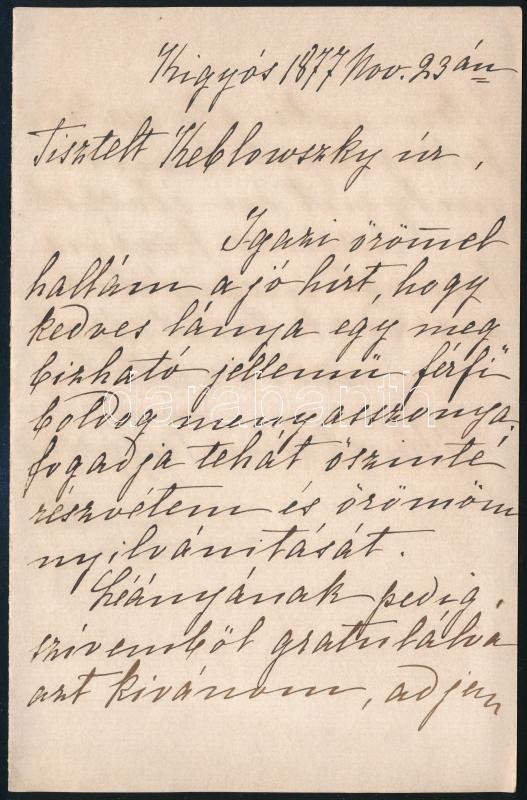 Kigyós 1877 Nov. 23án
Tisztelt Keblowszky úr,
Igazi örömel
hallám a jó hírt, hogy
kedves lánya egy meg
bizható jellemü férfi
boldog menyasszonya.
fogadja tehát öszinte
részvétem és örömöm
nyilvánitását.
Léányának pedig
szívemböl gratulálva
azt kivánom, adjen
darabanth